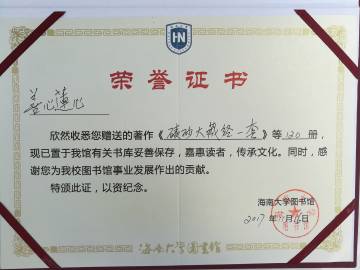 HN
荣誉证书
善心莲心
欣然收悉您赠送的著作《碛砂大藏经一套》等120册,
现已置于我馆有关书库妥善保存,嘉惠读者,传承文化。同时,感
谢您为我校图书馆事业发展作出的贡献。
特颁此证,以资纪念。
海南大学图书馆
2017年 月 日
海南大学图书馆